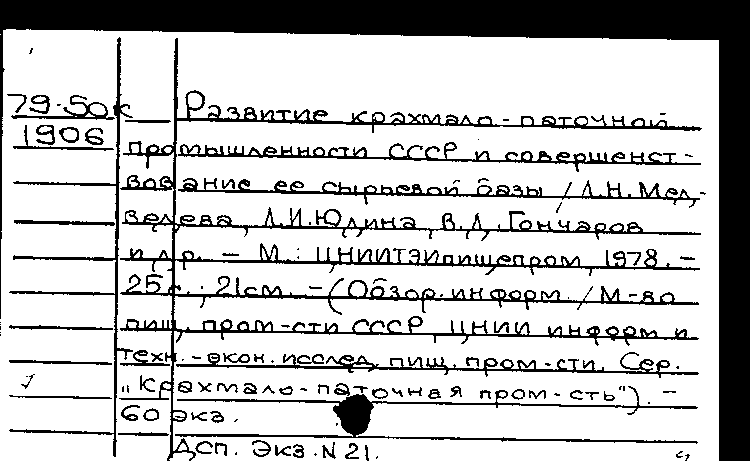 79-50к Развитие крахмало-паточной
1906 промышленности СССР и совершенст-
вование ее сырьевой базы / Л.Н. Мед-
ведева, Л.И. Юдина, В.Д. Гончаров
и др. – М.: ЦНИИТЭИпищепром, 1978. –
25с.; 21см. – (Обзор. информ. / М-во
пищ. пром-сти СССР, ЦНИИ информ и
техн.-экон. исслед. пищ. пром-сти. Сер.
„Крахмало-паточная пром-сть"). –
60 экз.
Дсп. Экз. N 21.